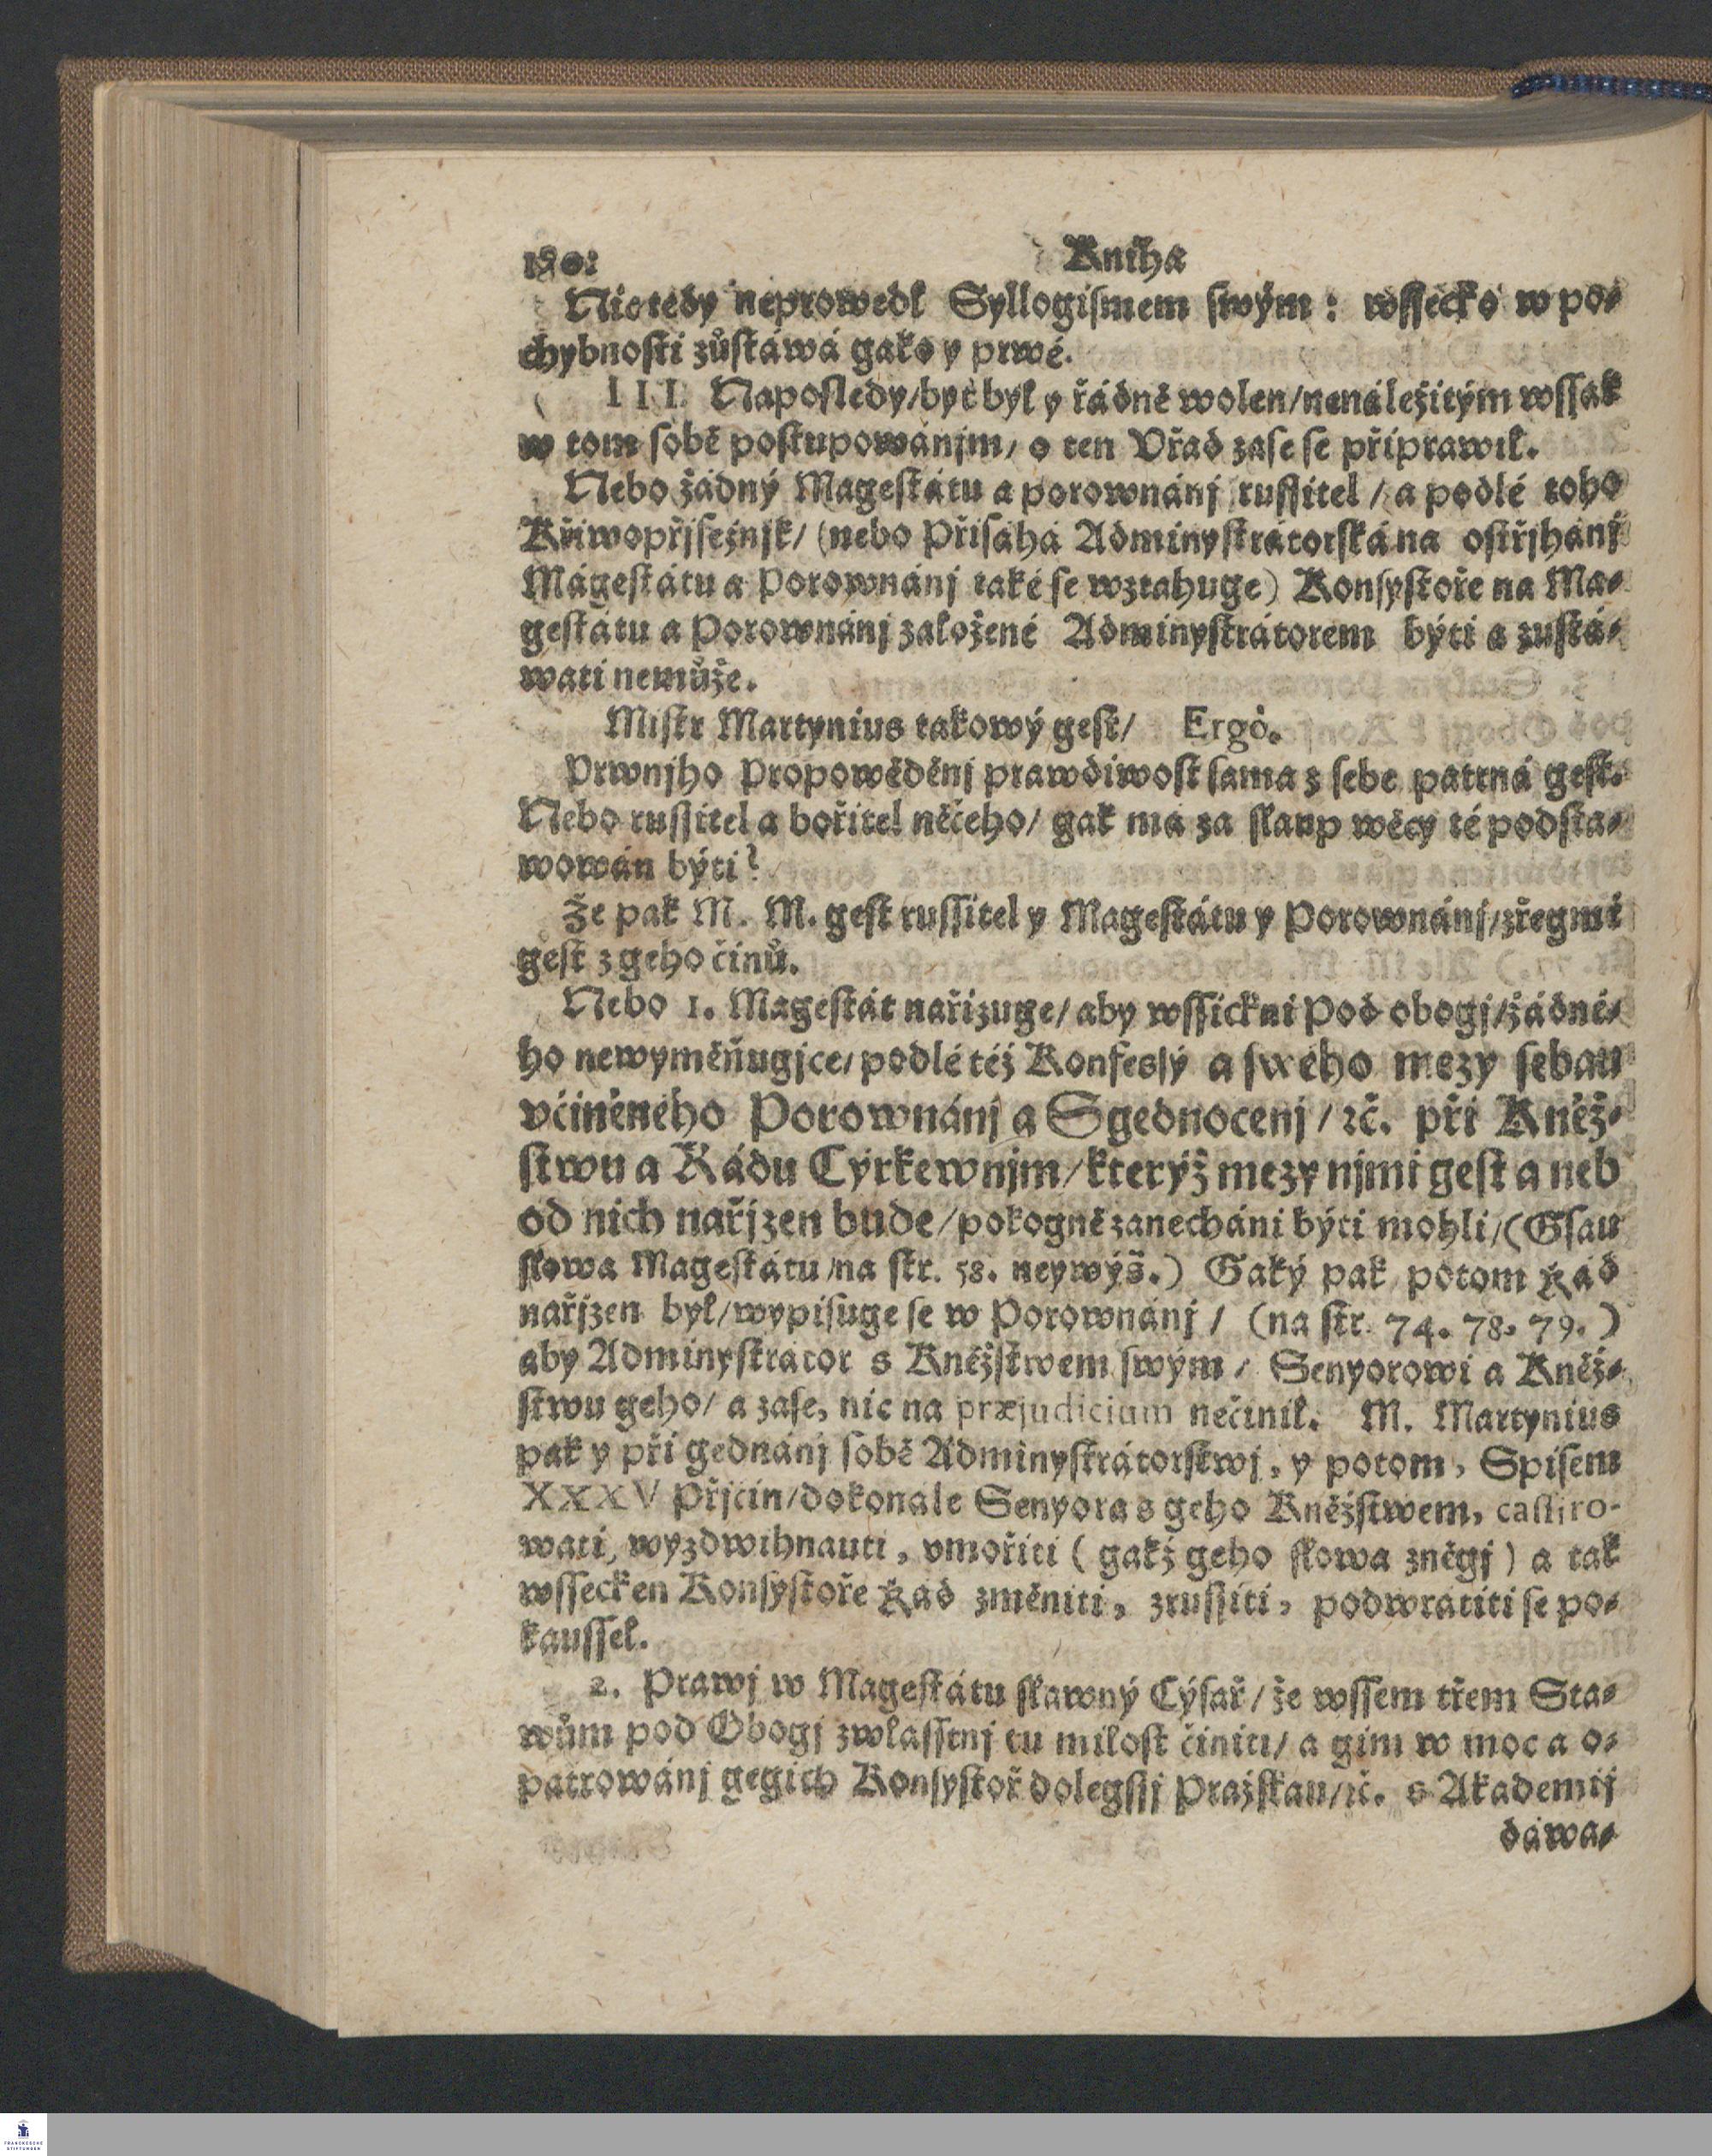 Kniha
Nic tedy neprowedl Syllogismem swým: wssecko w po-
chybnosti zůstáwá gako y prwé.
III. Naposledy/byť byl y řádně wolen/nenáležitým wssak
w tom sobě postupowánjm/ o ten Vřad zase se připrawil.
Nebo žádný Magestátu a porownánj russitel/ a podlé toho
Křiwopřjsežnjk/ (nebo Přisáha Adminystrátorská na ostřjhánj
Mágestátu a Porownánj také se wztahuge) Konsystoře na Ma-
gestátu a Porownánj založené Adminystrátorem býti a zustá-
wati nemůže.
Mistr Martynius takowý gest/ Ergò.
Prwnjho Propowěděnj prawdiwost sama z sebe patrná gest.
Nebo russitel a bořitel něčeho/ gak má za slaup wěcy té podsta-
wowán býti?
Že pak M. M. gest russitel y Magestátu y Porownánj/zřegmé
gest z geho činů.
Nebo 1. Magestát nařizuge/ aby wssickni Pod obogj/žádné-
ho newyměňugjce/ podlé též Konfessý a swého mezy sebau
včiněného Porownánj a Sgednocenj/ ꝛč. při Kněž-
stwu a Řádu Cýrkewnjm/kterýž mezy njmi gest a neb
od nich nařjzen bude/pokogně zanecháni býti mohli/(Gsau
slowa Magestátu/na str. 58. neywýš.) Gaký pak potom Řád
nařjzen byl/wypisuge se w Porownánj/ (na str. 74. 78. 79.)
aby Adminystrator s Kněžstwem swým/ Senyorowi a Kněž-
stwu geho/ a zase, nic na præjudicium nečinil. M. Martynius
pak y při gednánj sobě Adminystrátorstwj, y potom, Spisem
XXXV Přjčin/dokonale Senyora s geho Kněžstwem, cassiro-
wati, wyzdwihnauti, vmořiti (gakž geho slowa znëgj) a tak
wssecken Konsystoře Řád změniti, zrussiti, podwrátiti se po-
kaussel.
2. Prawj w Magestátu slawný Cýsař/ že wssem třem Sta-
wům pod Obogj zwlásstnj tu milost činiti/ a gim w moc a o-
patrowánj gegich Konsystoř dolegssj Pražskau/ꝛč. s Akademij
dáwa-